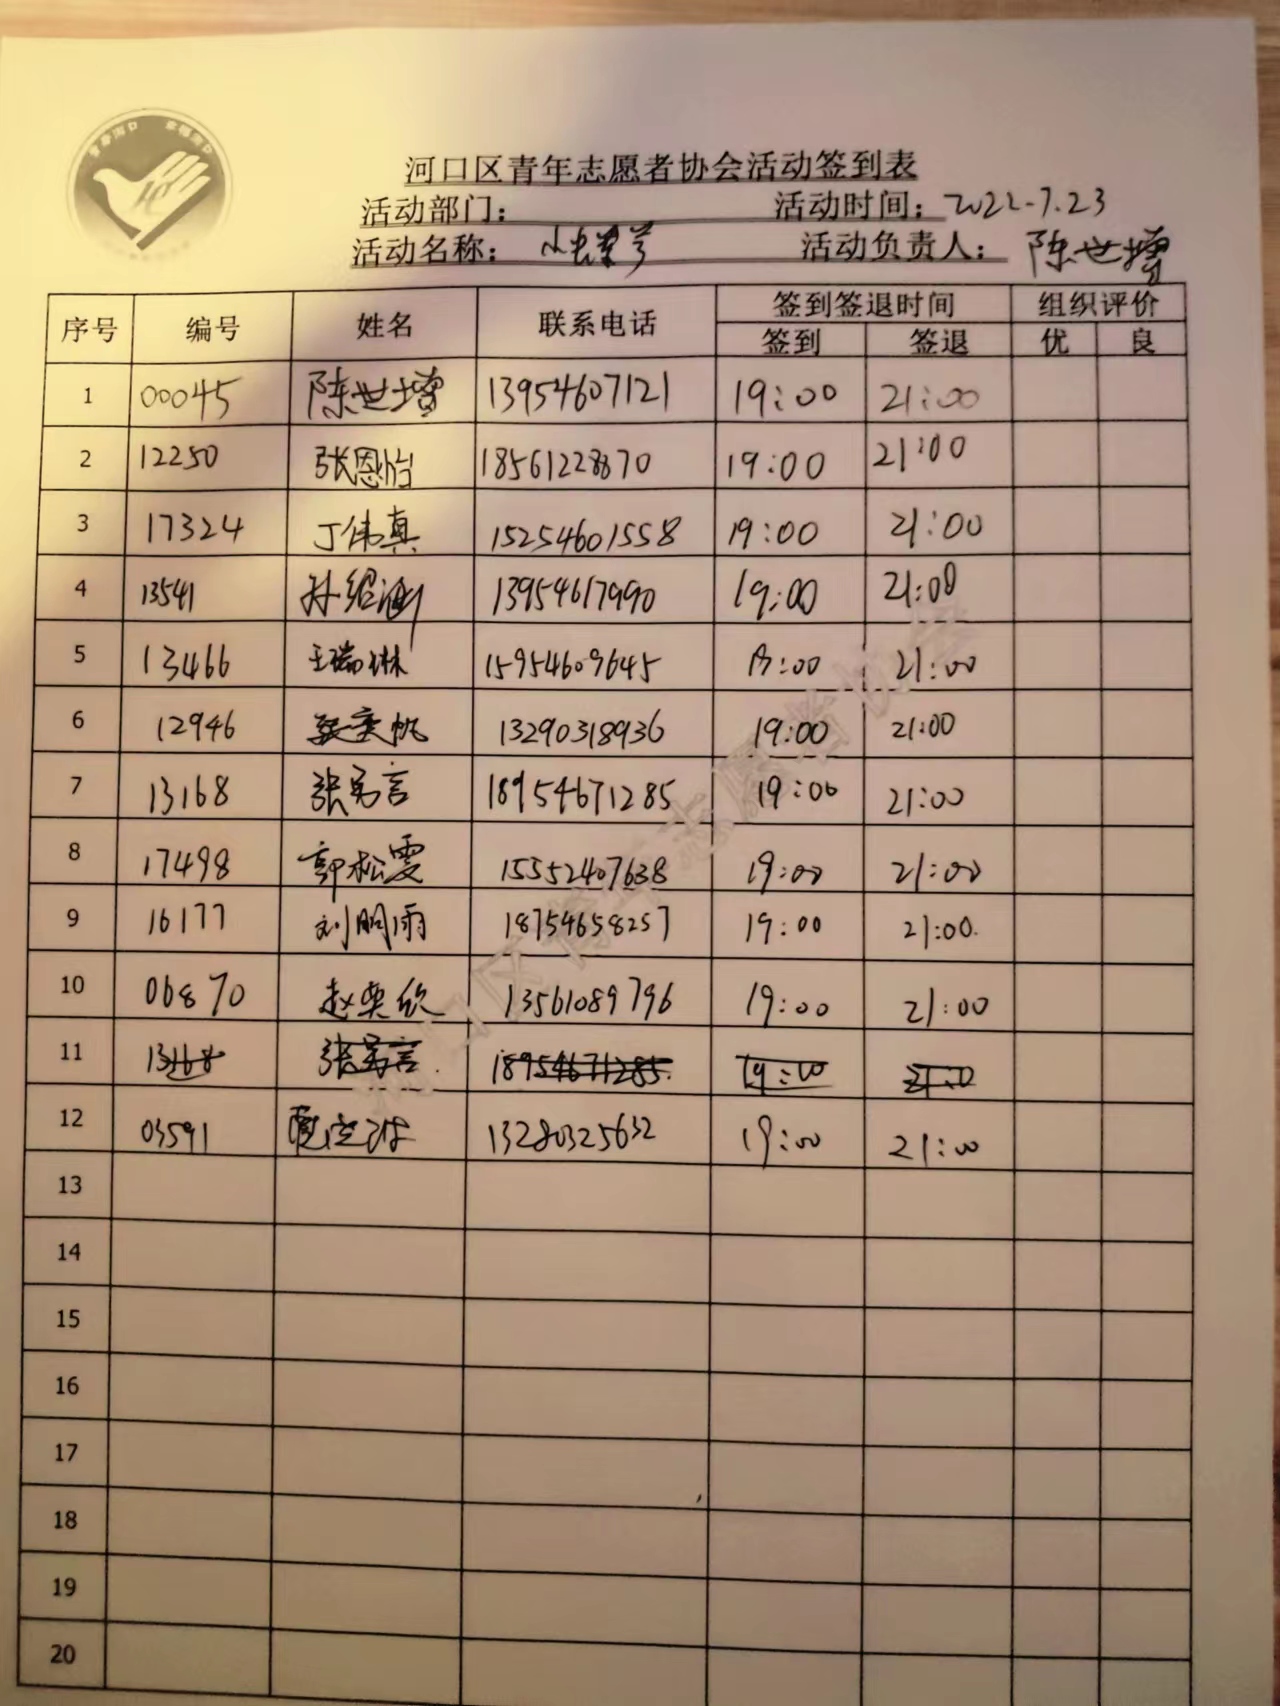 河口区青年志愿者协会活动签到表
活动部门： 活动时间：2022.7.23
活动名称： 活动负责人：陈世增
序号 编号 姓名 联系电话 签到签退时间 组织评价
签到 签退 优 良
1 00045 陈世增 13954607121 19:00 21:00
2 12250 张恩怡 18561228870 19:00 21:00
3 17324 丁伟真 15254601558 19:00 21:00
4 13541 孙绍涵 13954617990 19:00 21:00
5 13466 王瑞琳 15954609645 21:00
6 12946 13290318936 19:00 21:00
7 13168 言 18954671285 19:00 21:00
8 17498 郭松雯 15552407638 19:00 21:00
9 16177 刘明雨 18754658257 19:00 21:00.
10 06870 赵奕欣 13561089796 19:00 21:00
11 13168 言 18954671285 19:00 21:00
12 03591 13280325632 19:00 21:00
13
14
15
16
17
18
19
20
河口区青年志愿者协会